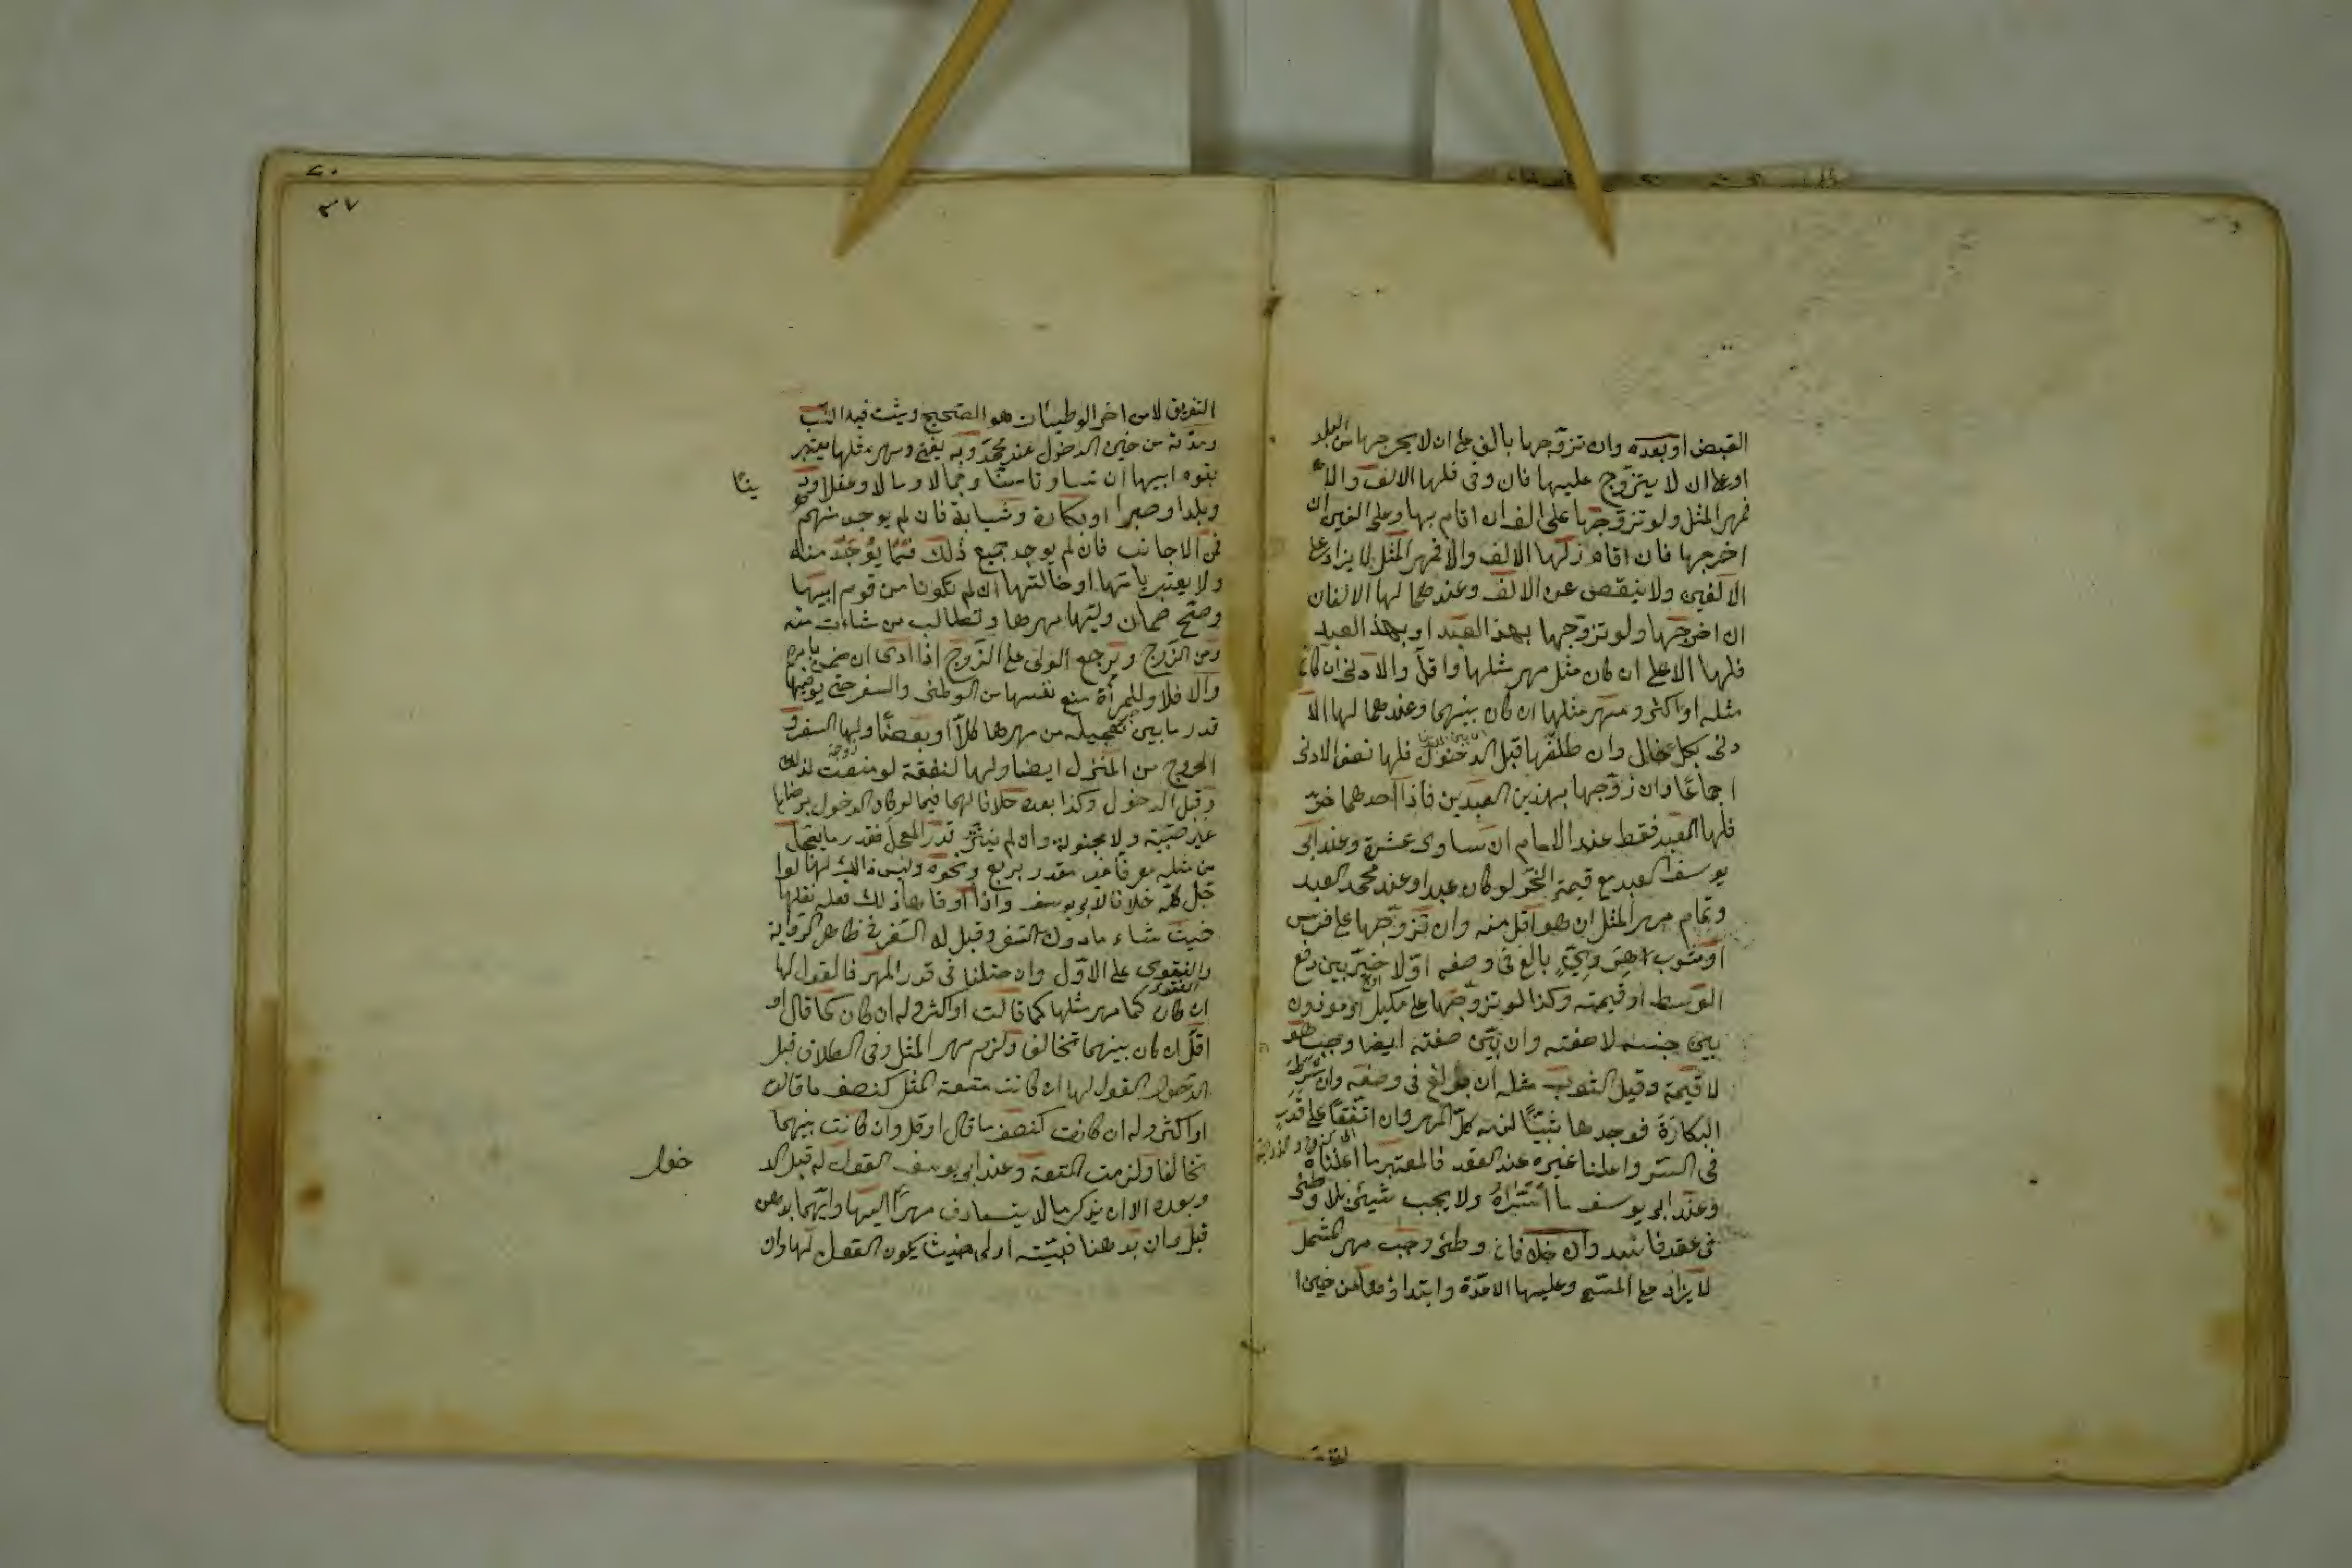 القبض او بعده وان تزوجها بالف على ان لا يخرجها من البلد
او على ان لا يتزوج عليها فان وفى فلها الالف والا
فمهر المثل ولو تزوجها على الف ان اقام بها وعلى الفين ان
اخرجها فان اقام فلها الالف والا فمهر المثل لا يزاد على
الالفين ولا ينقص عن الالف وعندهما لها الالفان
ان اخرجها ولو تزوجها بهذا العبد او بهذا العبد
فلها الاعلى ان كان مثل مهر مثلها واقل والادنى ان كان
مثله او اكثر ومهر مثلها ان كان بينهما وعندهما لها الا
دنى بكل حال وان طلقها قبل الدخول فلها نصف الادنى
اجماعا وان تزوجها بهذين العبدين فاذا احدهما حر
فلها العبد فقط عند الامام ان ساوى عشرة وعند ابى
يوسف العبد مع قيمة الحر لو كان عبدا وعند محمد العبد
وتمام مهر المثل ان هو اقل منه وان تزوجها على فرس
او ثوب هروى بالغ فى وصفه اولا خير بين دفع
الوسط او قيمته وكذا لو تزوجها على مكيل او موزون
بين جنسه لا صفته وان بين صفته ايضا وجب هو
لا قيمة وقيل الثوب مثله ان بولغ فى وصفه وان شرط
البكارة فوجدها ثيبا لزمه كل المهر وان اتفقا على قدر
فى السر واعلنا غيره عند العقد فالمعتبر ما اعلناه
وعند ابى يوسف ما اسراه ولا يجب شيئ بلا وطئ
فى عقد فاسد وان خلا فان وطئ وجب مهر المثل
لا يزاد على المسمى وعليها العدة وابتداؤها من حين ا
لتفريق
التفريق لا من اخر الوطيئات هو الصحيح ويثبت فيه النسب
ومدته من حين الدخول عند محمد وبه يفتى ومهر مثلها يعتبر
بقوم ابيها ان تساوتا سنا وجمالا ومالا وعقلا ود
ينا
وبلدا وعصرا او بكارة وثيابة فان لم يوجد منهم
فمن الاجانب فان لم يوجد جميع ذلك فما يوجد منه
ولا يعتبر بامها او خالتها ان لم تكونا من قوم ابيها
وصح ضمان وليها مهرها وتطالب من شاءت منه
ومن الزوج ويرجع الولى على الزوج اذا ادى ان ضمن بامره
والا فلا وللمرأة منع نفسها من الوطئ والسفر حتى يوفيها
قدر ما بين تعجيله من مهرها كلا او بعضا ولها السفر و
الخروج من المنزل ايضا ولها النفقة لو منعت لذلك
وقبل الدخول وكذا بعده خلافا لهما فيما لو كان الدخول برضاها
غير صبية ولا مجنونة وان لم يبين قدر المعجل فقدر ما يعجل
من مثله عرفا غير مقدر بربع ونحوه وليس ذالك لها لو ا
جل كله خلافا لابى يوسف واذا اوفاها ذلك فله نقلها
حيث شاء ما دون السفر وقيل له السفر فى ظاهر الرواية
والفتوى على الاول وان اختلفا فى قدر المهر فالقول لها
ان كان كما مهر مثلها كما قالت او اكثر وله ان كان كما قال او
اقل ان كان بينهما تخالفا ولزم مهر المثل وفى الطلاق قبل
الدخول القول لها ان كانت متعة المثل كنصف ما قالت
او اكثر وله ان كانت كنصف ما قال او قل وان كانت بينهما
تخالفا ولزمت المتعة وعند ابى يوسف القول له قبل الد
خول
وبعده الا ان يذكر ما لا يتعارف مهرا لها وايهما برهن
قبل وان برهنا فبينته اولى حيث يكون القول لها وان